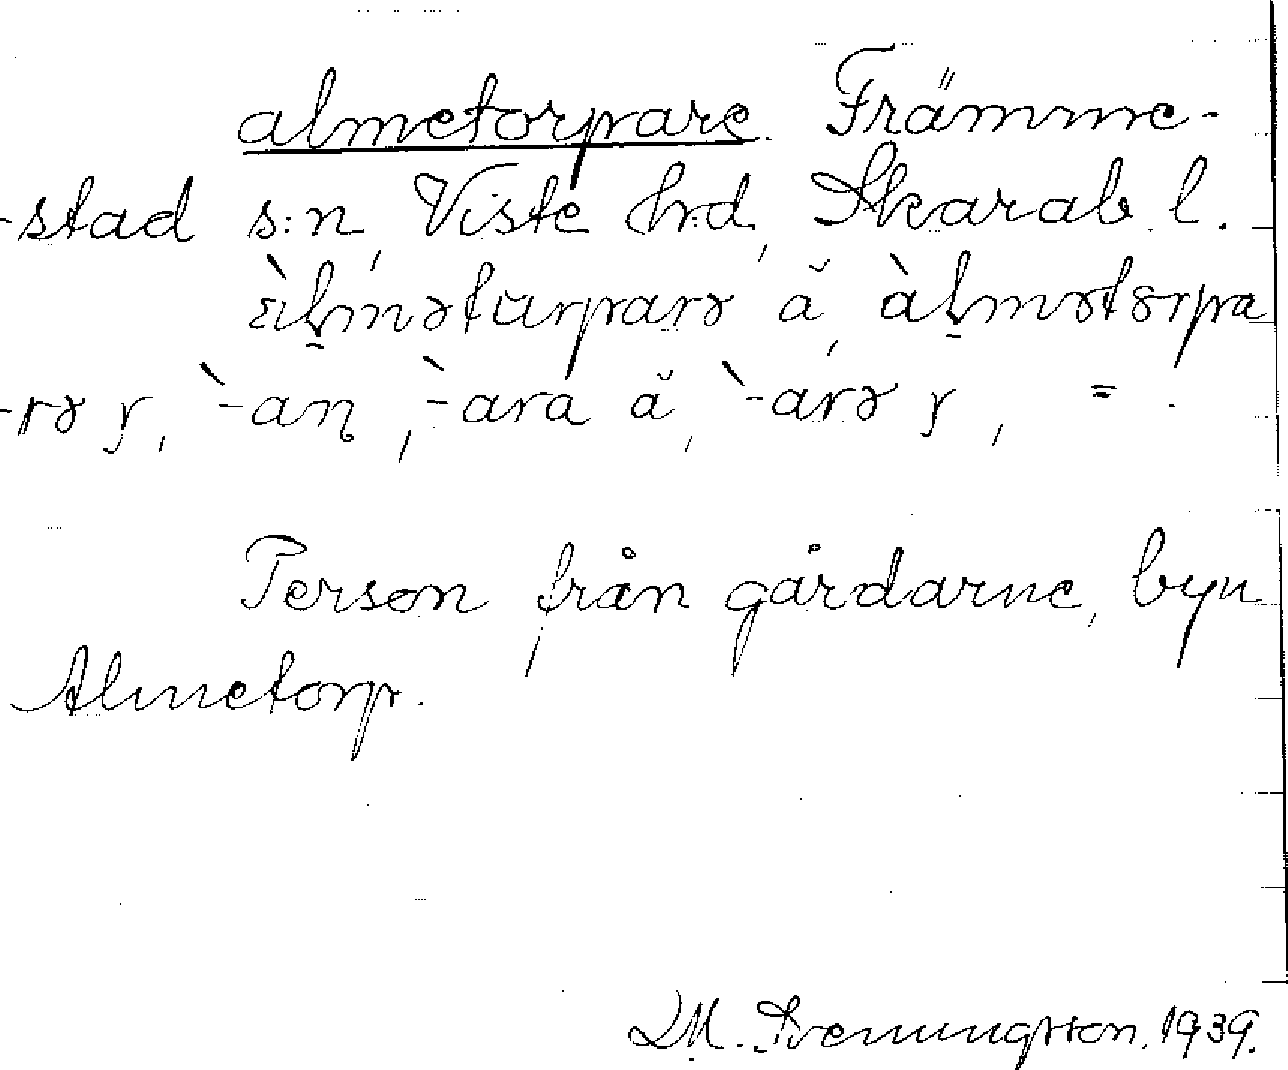 almetorpare. Främme-
-stad s:n, Viste hrd, Skarab. l.
àlməturparə ă, àlmətorpa
-rə r, `-aɳ, `-ara ă, `-arə r, = .
Person från gårdarne, byn
Almetorp.
M. Svenungsson. 1939.